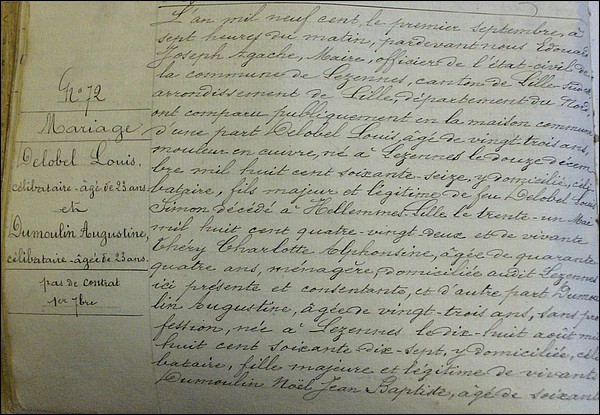 N° 72
Mariage
Delobel Louis,
célibataire - âgé de 23 ans
et
Dumoulin Augustine,
célibataire - âgée de 23 ans.
pas de contrat
1er 7bre
L'an mil neuf cent, le premier septembre, à
sept heures du matin, pardevant nous Edouard
Joseph Agache, Maire, officier de l'état-civil de
la commune de Lezennes, canton de Lille
arrondissement de Lille, département du Nord,
ont comparu publiquement en la maison commune
d'une part Delobel Louis, âgé de vingt trois ans,
mouleur en cuivre, né à Lezennes le douze décem
bre mil huit cent soixante-seize, y domicilié, céli
bataire, fils majeur et légitime de feu Delobel Louis
Simon décédé à Hellemmes-Lille le trente-un Mai
mil huit cent quatre-vingt deux et de vivante
Théry Charlotte Alphonsine, âgée de quarante
quatre ans, ménagère, domiciliée audit Lezennes
ici présente et consentante, et d'autre part Dumou
lin Augustine, âgée de vingt-trois ans, sans pro
fession, née à Lezennes le dix-huit août mil
huit cent soixante dix-sept, y domiciliée, céli
bataire, fille majeure et légitime de vivant
Dumoulin Noël Jean Baptiste, âgé de soixante